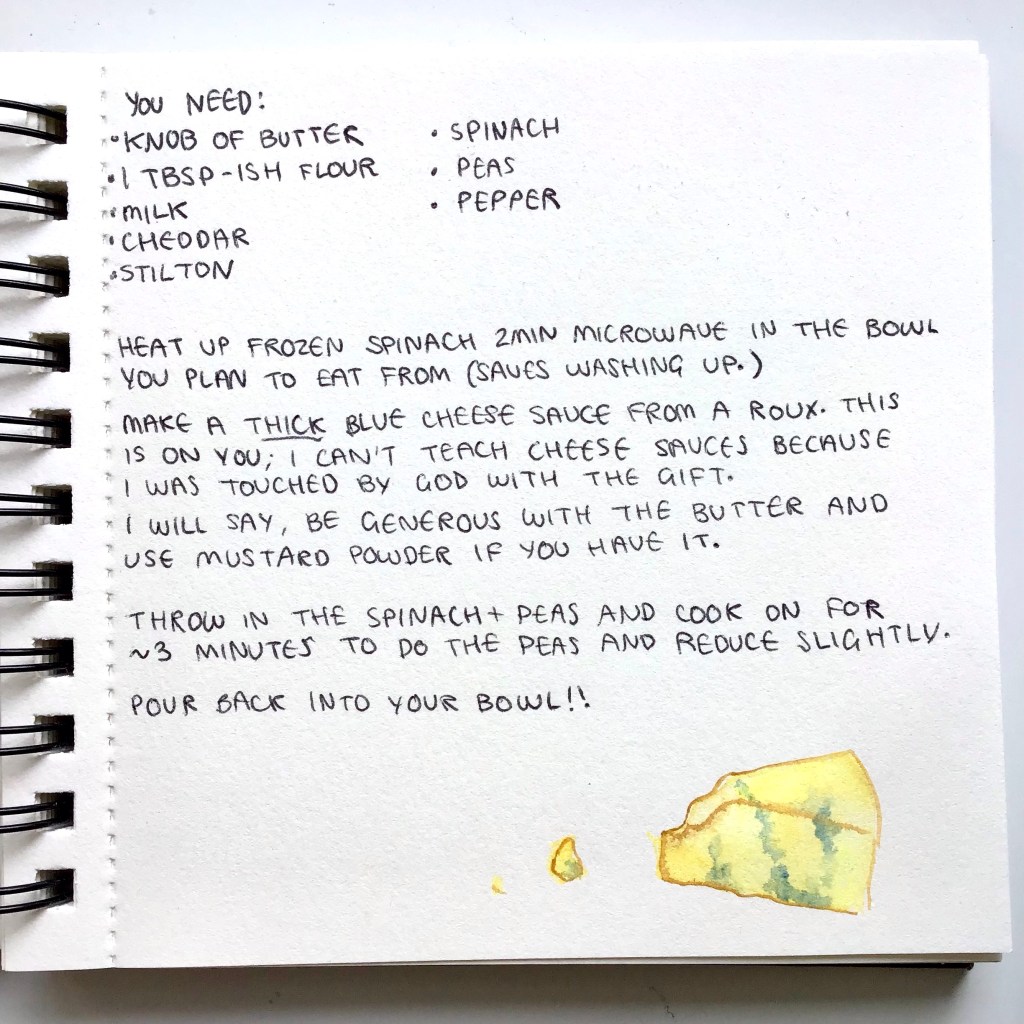 YOU NEED:
• KNOB OF BUTTER
• 1 TBSP-ISH FLOUR
• MILK
• CHEDDAR
• STILTON
• SPINACH
• PEAS
• PEPPER
HEAT UP FROZEN SPINACH 2MIN MICROWAVE IN THE BOWL
YOU PLAN TO EAT FROM (SAVES WASHING UP.)
MAKE A THICK BLUE CHEESE SAUCE FROM A ROUX. THIS
IS ON YOU; I CAN'T TEACH CHEESE SAUCES BECAUSE
I WAS TOUCHED BY GOD WITH THE GIFT.
I WILL SAY, BE GENEROUS WITH THE BUTTER AND
USE MUSTARD POWDER IF YOU HAVE IT.
THROW IN THE SPINACH + PEAS AND COOK ON FOR
~3 MINUTES TO DO THE PEAS AND REDUCE SLIGHTLY.
POUR BACK INTO YOUR BOWL!!